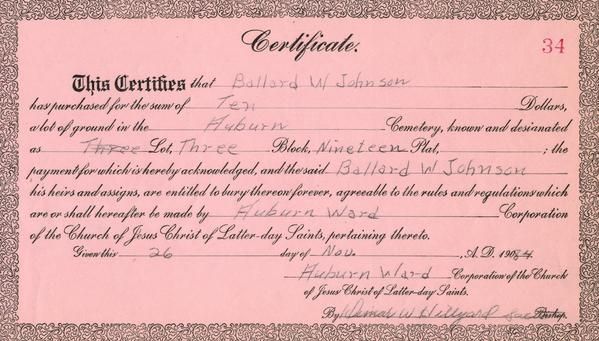 Certificate.
34
This Certifies that Ballard W Johnson
has purchased for the sum of Ten Dollars,
a lot of ground in the Auburn Cemetery, known and desianated
as Three Lot, Three Block, Nineteen Plat, ; the
payment for which is hereby acknowledged, and the said Ballard W Johnson
his heirs and assigns, are entitled to bury thereon forever, agreeable to the rules and regulations which
are or shall hereafter be made by Auburn Ward Corporation
of the Church of Jesus Christ of Latter-day Saints, pertaining thereto.
Given this 26 day of Nov. , A. D. 19
Auburn Ward Corporation of the Church
of Jesus Christ of Latter-day Saints.
By W Hillyard Bishop.